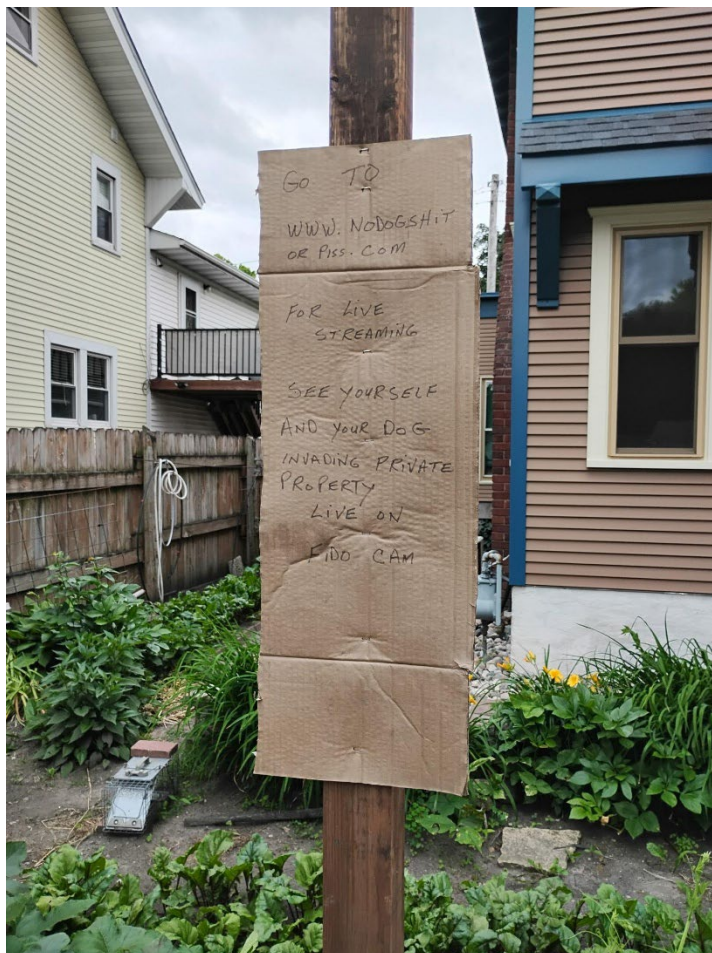 GO TO
WWW. NODOGSHIT
OR PISS. COM
FOR LIVE
STREAMING
SEE YOURSELF
AND YOUR DOG
INVADING PRIVATE
PROPERTY
LIVE ON
FIDO CAM